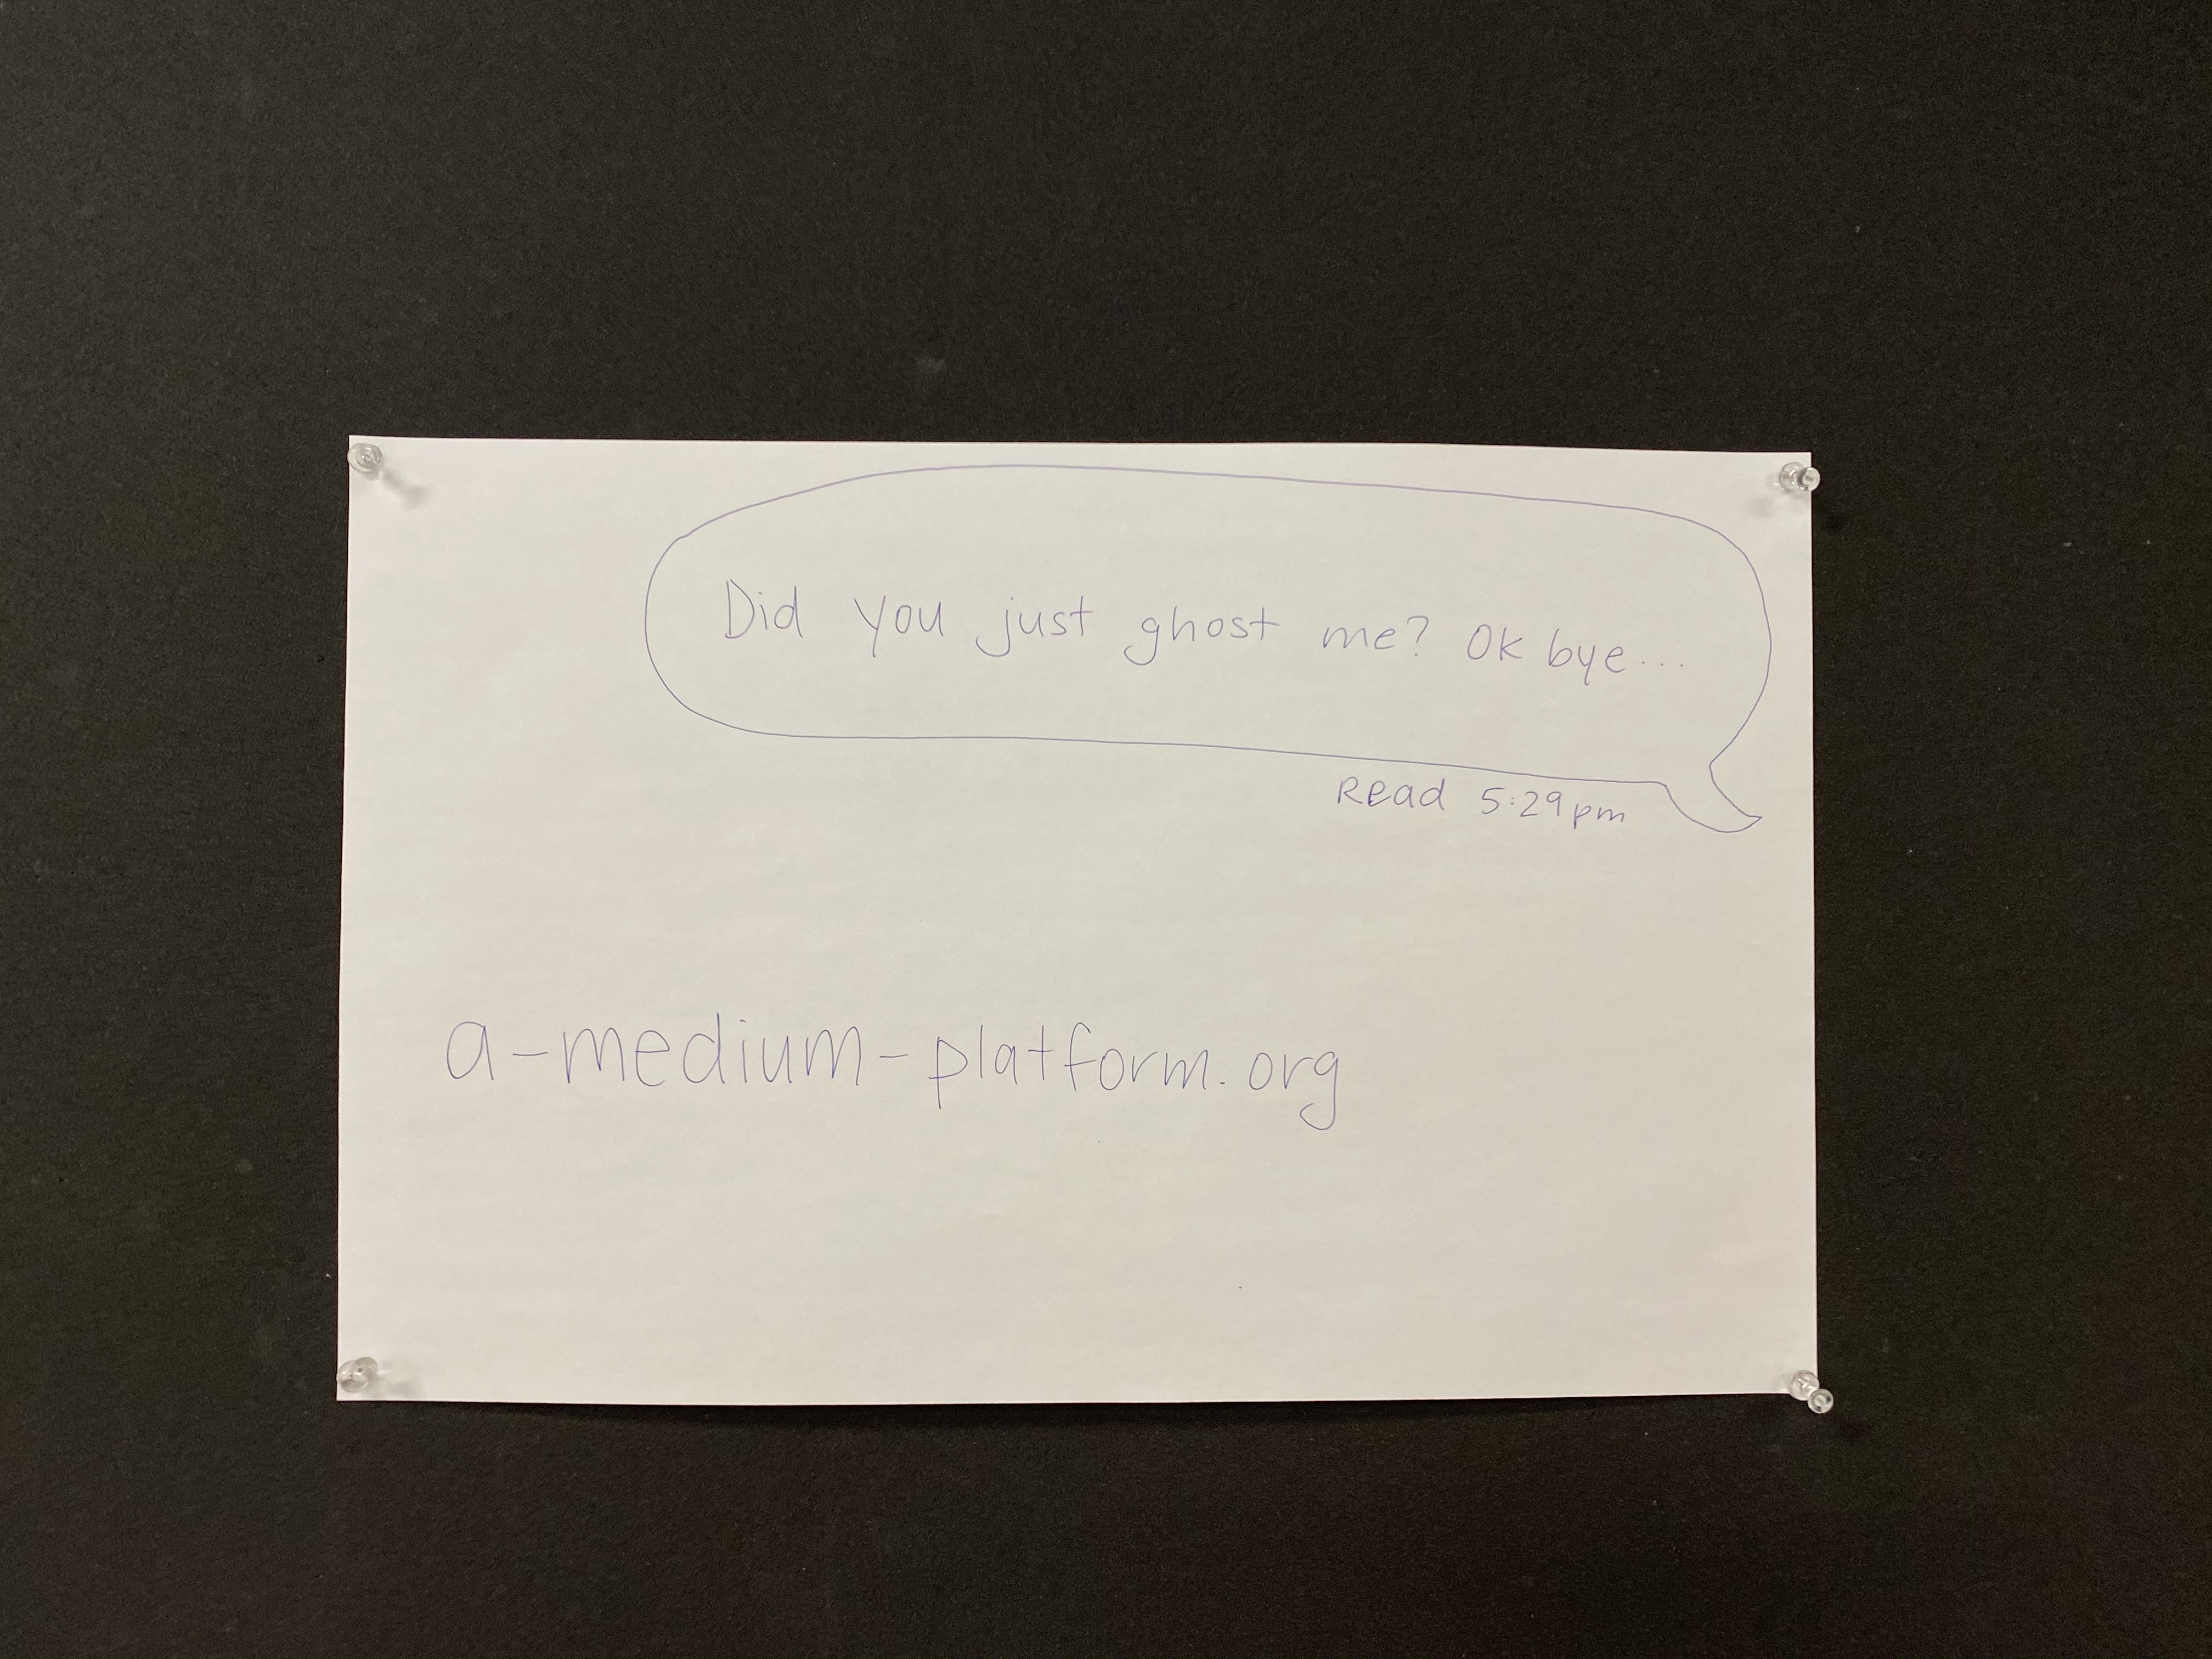 Did you just ghost me? Ok bye...
Read 5:29pm
a-medium-platform.org